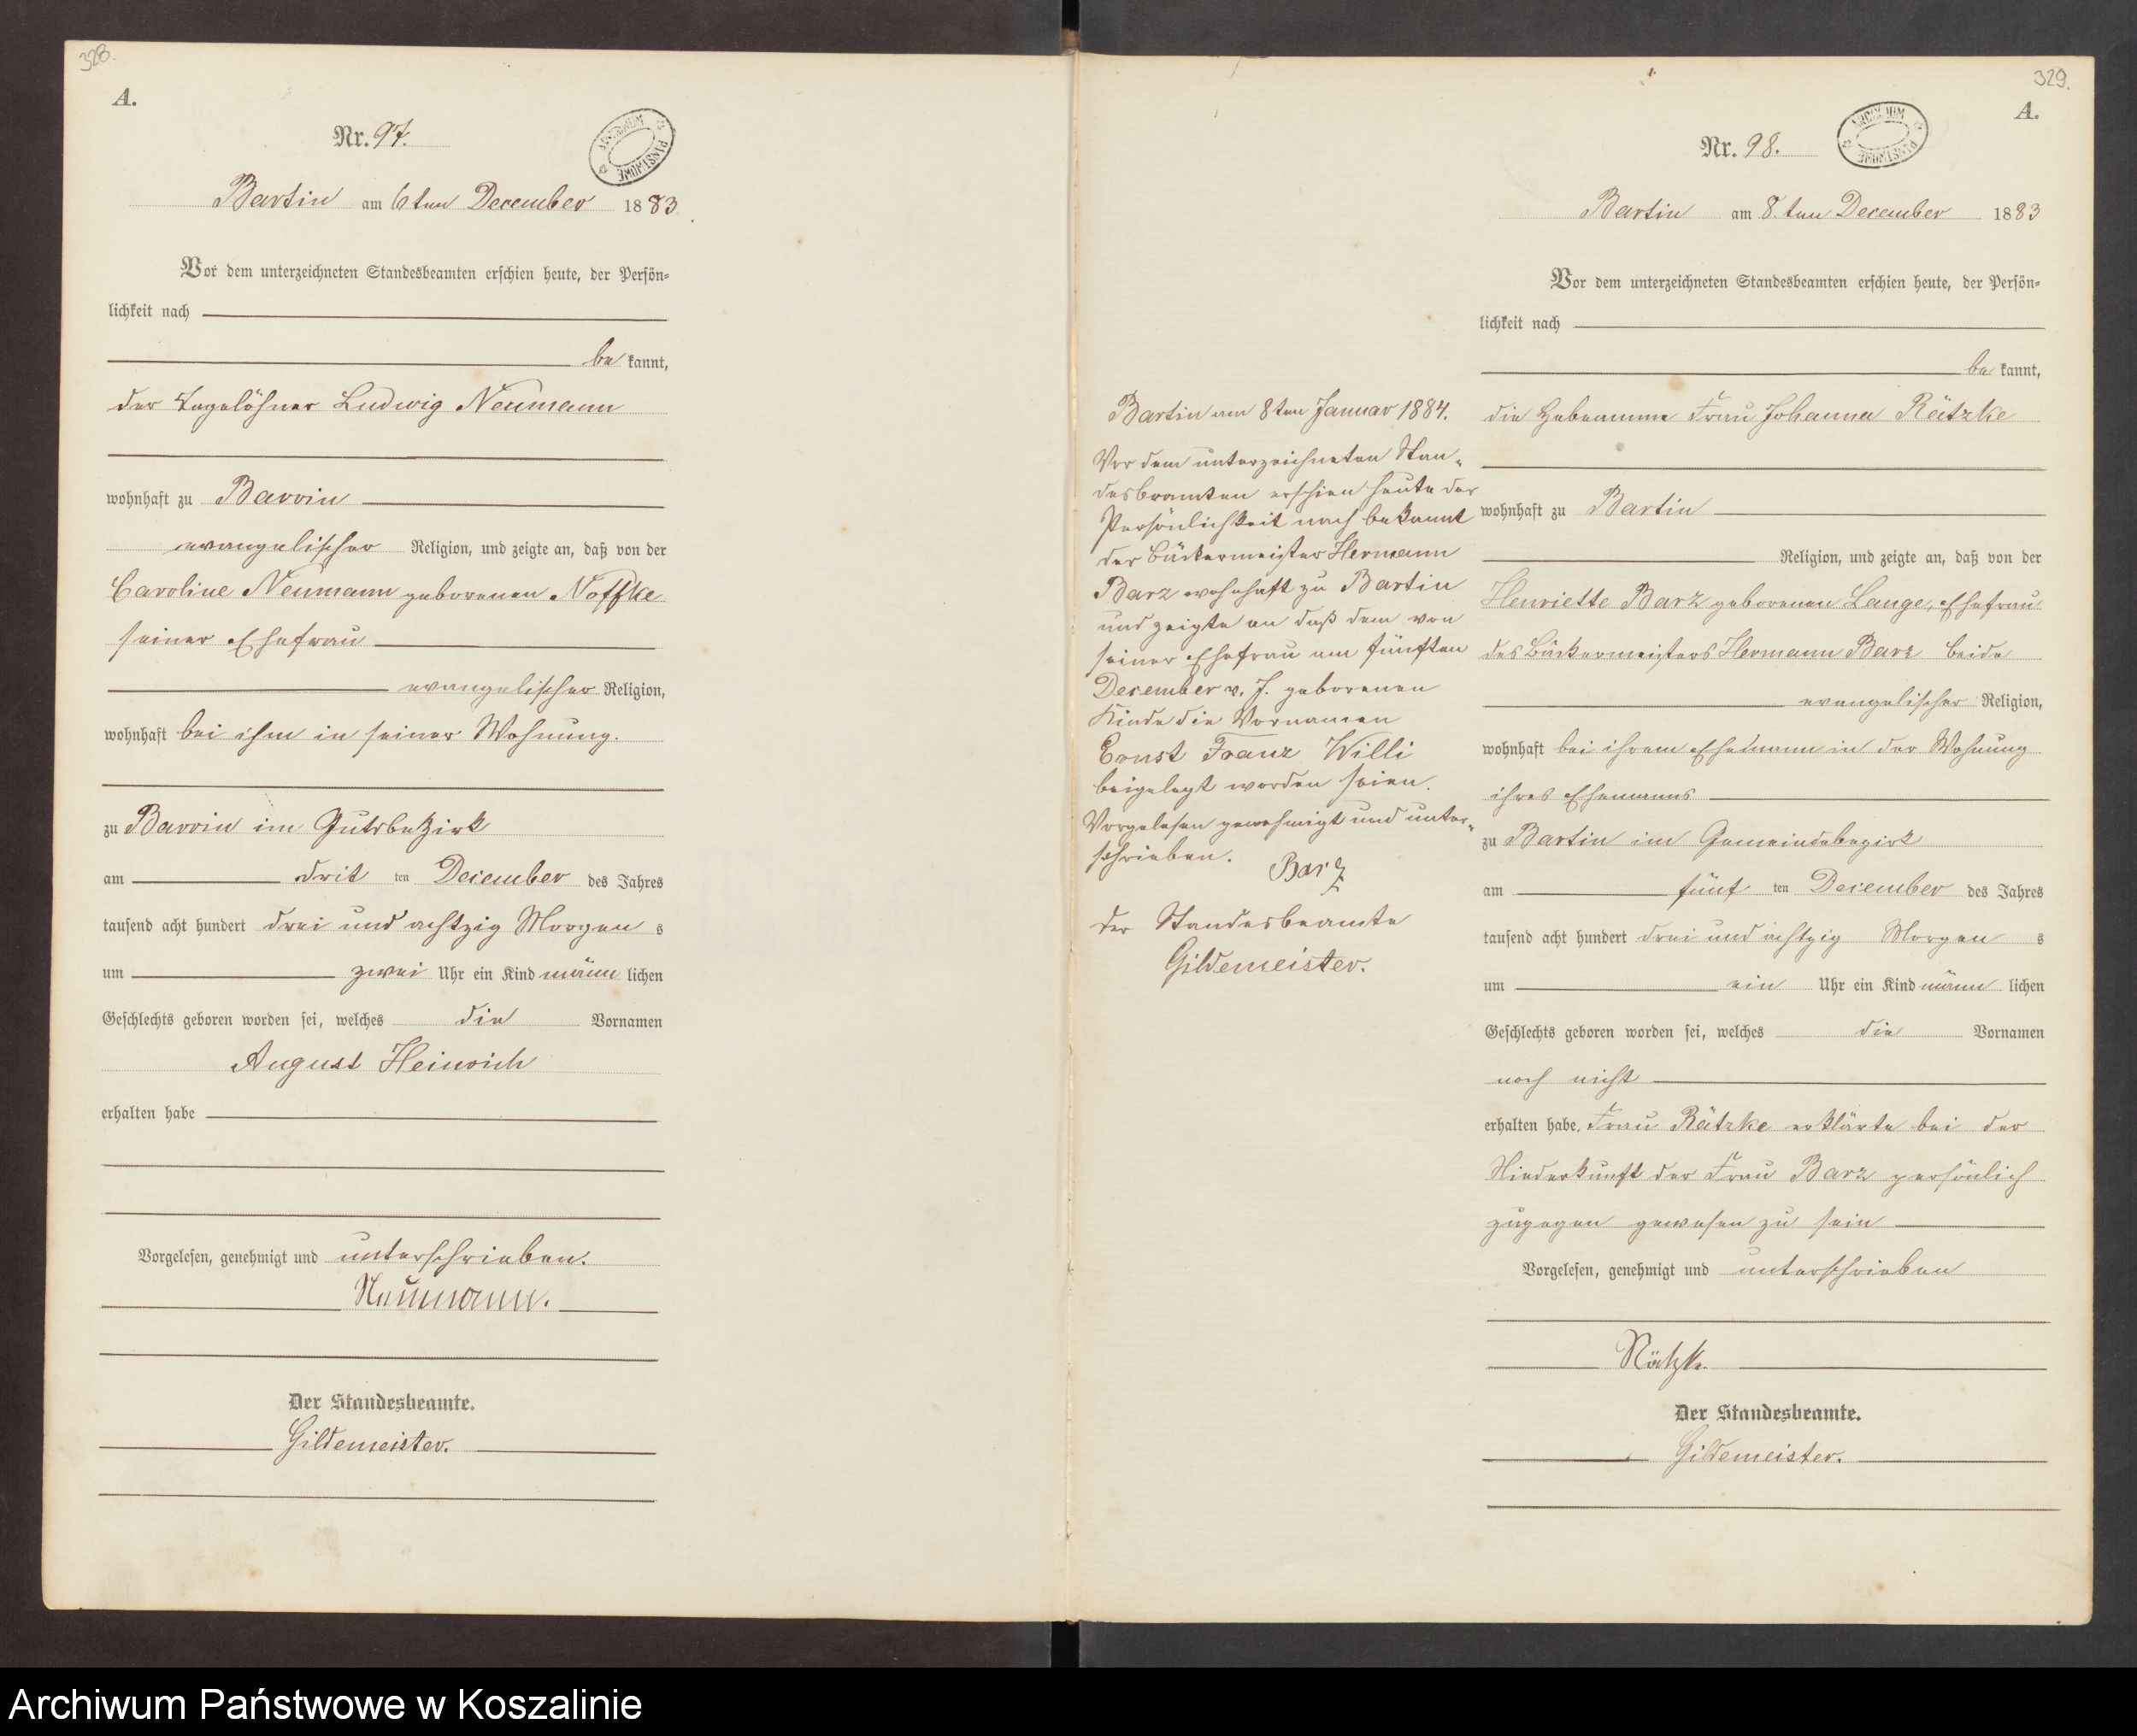 328.
A.
Nr. 97.
ARCHIWUM PAŃSTWOWE
Bartin am 6ten December 1883.
Vor dem unterzeichneten Standesbeamten erschien heute, der Persön-
lichkeit nach
be kannt,
der Tagelöhner Ludwig Neumann
wohnhaft zu Barvin
evangelischer Religion, und zeigte an, daß von der
Caroline Neumann geborenen Noffke
seiner Ehefrau
evangelischer Religion,
wohnhaft bei ihm in seiner Wohnung.
zu Barvin im Gutsbezirk
am drit ten December des Jahres
tausend acht hundert drei und achtzig Morgen s
um zwei Uhr ein Kind männ lichen
Geschlechts geboren worden sei, welches die Vornamen
August Heinrich
erhalten habe
Vorgelesen, genehmigt und unterschrieben.
Neumann.
Der Standesbeamte.
Gildemeister.
329.
A.
Nr. 98.
ARCHIWUM PAŃSTWOWE
Bartin am 8.ten December 1883
Vor dem unterzeichneten Standesbeamten erschien heute, der Persön-
lichkeit nach
be kannt,
die Hebeamme Frau Johanna Rätzke
wohnhaft zu Bartin
Religion, und zeigte an, daß von der
Henriette Barz geborenen Lange, Ehefrau
des Bäckermeisters Hermann Barz beide
evangelischer Religion,
wohnhaft bei ihrem Ehemann in der Wohnung
ihres Ehemanns
zu Bartin im Gemeindebezirk
am fünf ten December des Jahres
tausend acht hundert drei und achtzig Morgen s
um ein Uhr ein Kind männ lichen
Geschlechts geboren worden sei, welches die Vornamen
noch nicht
erhalten habe. Frau Rätzke erklärte bei der
Niederkunft der Frau Barz persönlich
zugegen gewesen zu sein
Vorgelesen, genehmigt und unterschrieben
Rätzke.
Der Standesbeamte.
Gildemeister.
Bartin am 8ten Januar 1884.
Vor dem unterzeichneten Stan-
desbeamten erschien heute der
Persönlichkeit nach bekannt
der Bäckermeister Hermann
Barz wohnhaft zu Bartin
und zeigte an daß dem von
seiner Ehefrau am fünften
December v. J. geborenen
Kinde die Vornamen
Ernst Franz Willi
beigelegt worden seien.
Vorgelesen genehmigt und unter-
schrieben. Barz
der Standesbeamte
Gildemeister.
Archiwum Państwowe w Koszalinie